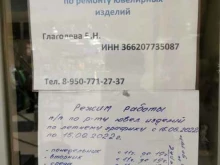 по ремонту ювелирных
изделий
Глаголева Е.Н.
ИНН 366207735087
Тел. 8-950-771-27-37
Режим работы
п/п по р-ту ювел изделий
по летнему графику с 16.05.2022
по 15.09.2022г.
- понедельник
- вторник